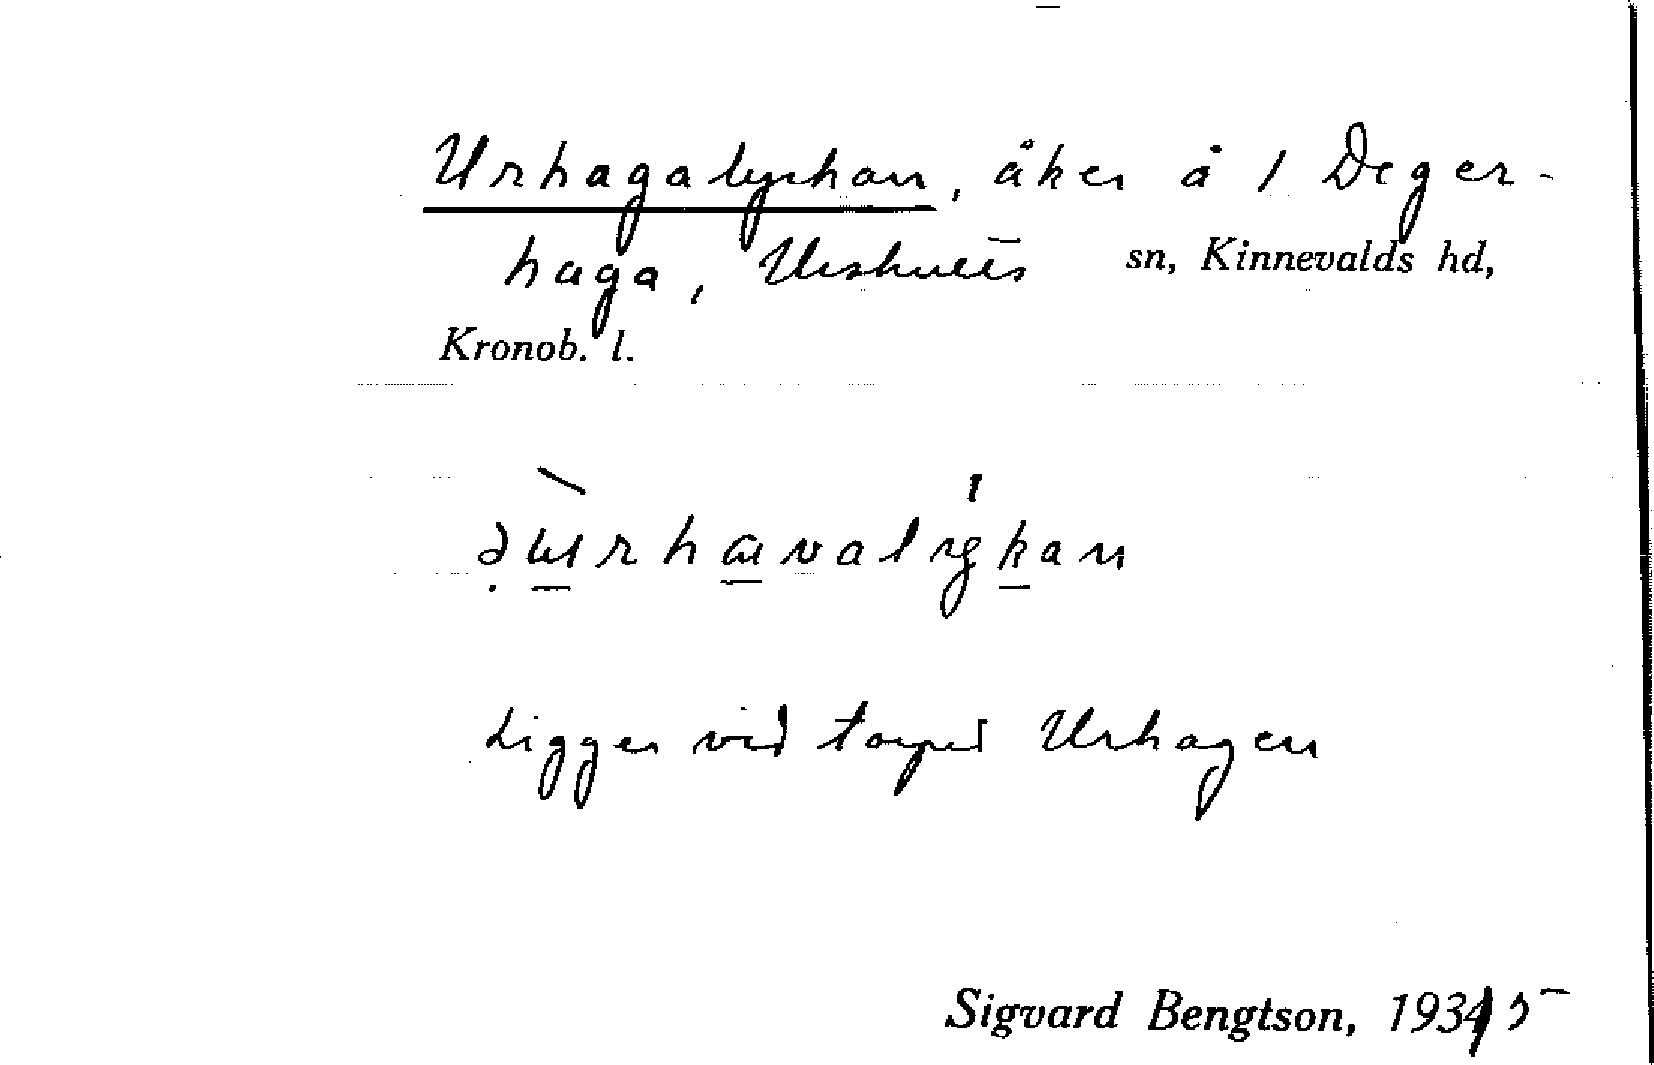 Urhagalyckan, åker å 1 Deger-
haga, Urshults sn, Kinnevalds hd,
Kronob. l.
Ligger vid torpet Urhagen
Sigvard Bengtson, 1935